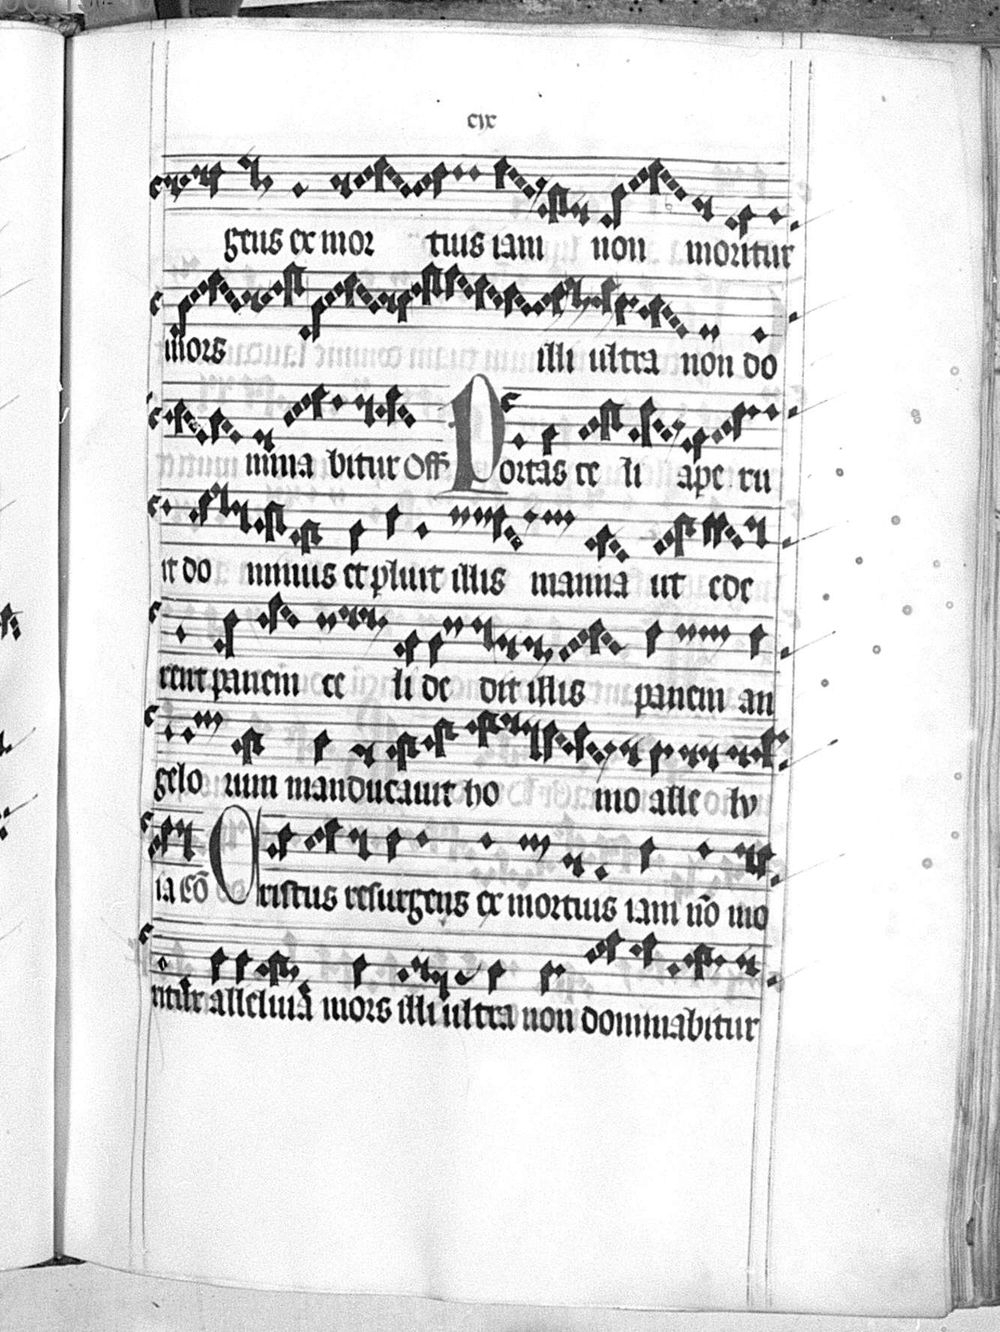 cix
gens ex mor tuis iam non moritur
mors illi ultra non do
mina bitur Off Portas ce li ape ru
it do minus et pluit illis manna ut ede
rent panem ce li de dit illis panem an
gelo rum manducavit ho mo alle lu
ia cō Cristus resurgens ex mortuis iam nō mo
ritur alleluia mors illi ultra non dominabitur